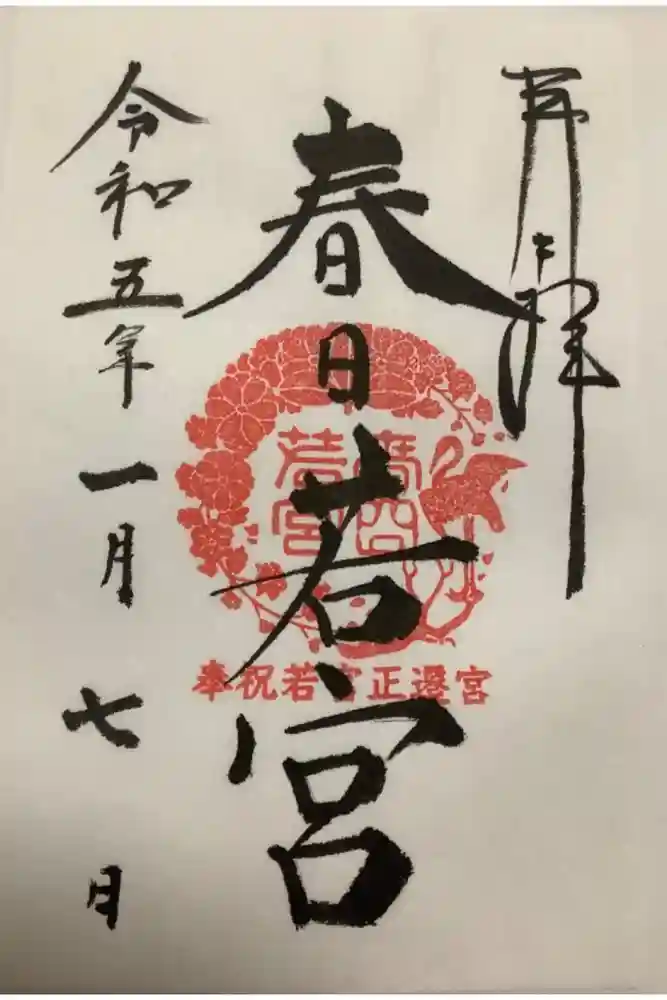 奉拝
春日若宮
春日
若宮
奉祝若宮正遷宮
令和五年一月七日